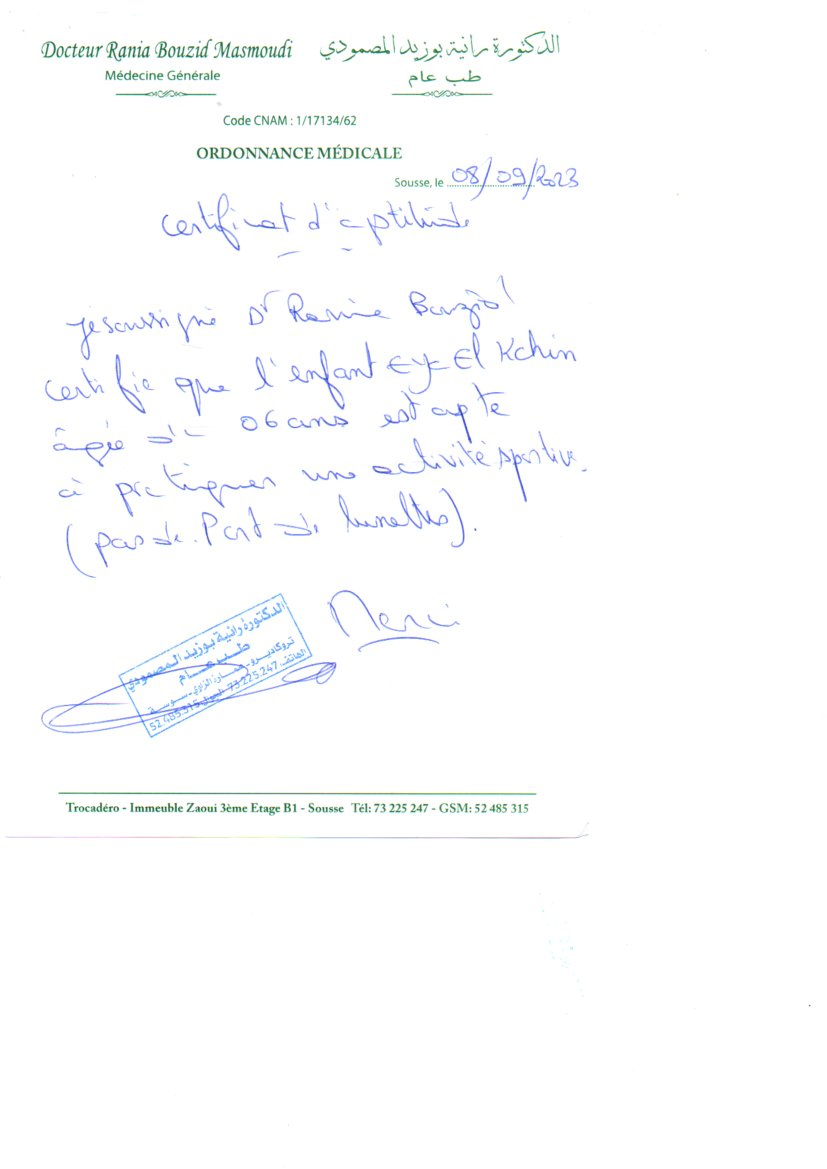 Docteur Rania Bouzid Masmoudi
الدكتورة رانية بوزيد المصمودي
Médecine Générale
طب عام
Code CNAM : 1/17134/62
ORDONNANCE MÉDICALE
Sousse, le 08/09/2023
Certificat d'aptitude
Je soussigné Dr Rania Bouzid
certifie que l'enfant Eya El Kchin
âgée de 06 ans est apte
à pratiquer une activité sportive
(pas de Port de lunettes).
Merci
الدكتورة رانية بوزيد المصمودي
طب عام
تروكاديرو - عمارة الزاوي - سوسة
الهاتف: 73.225.247 الجوال: 52.485.315
Trocadéro - Immeuble Zaoui 3ème Etage B1 - Sousse Tél: 73 225 247 - GSM: 52 485 315